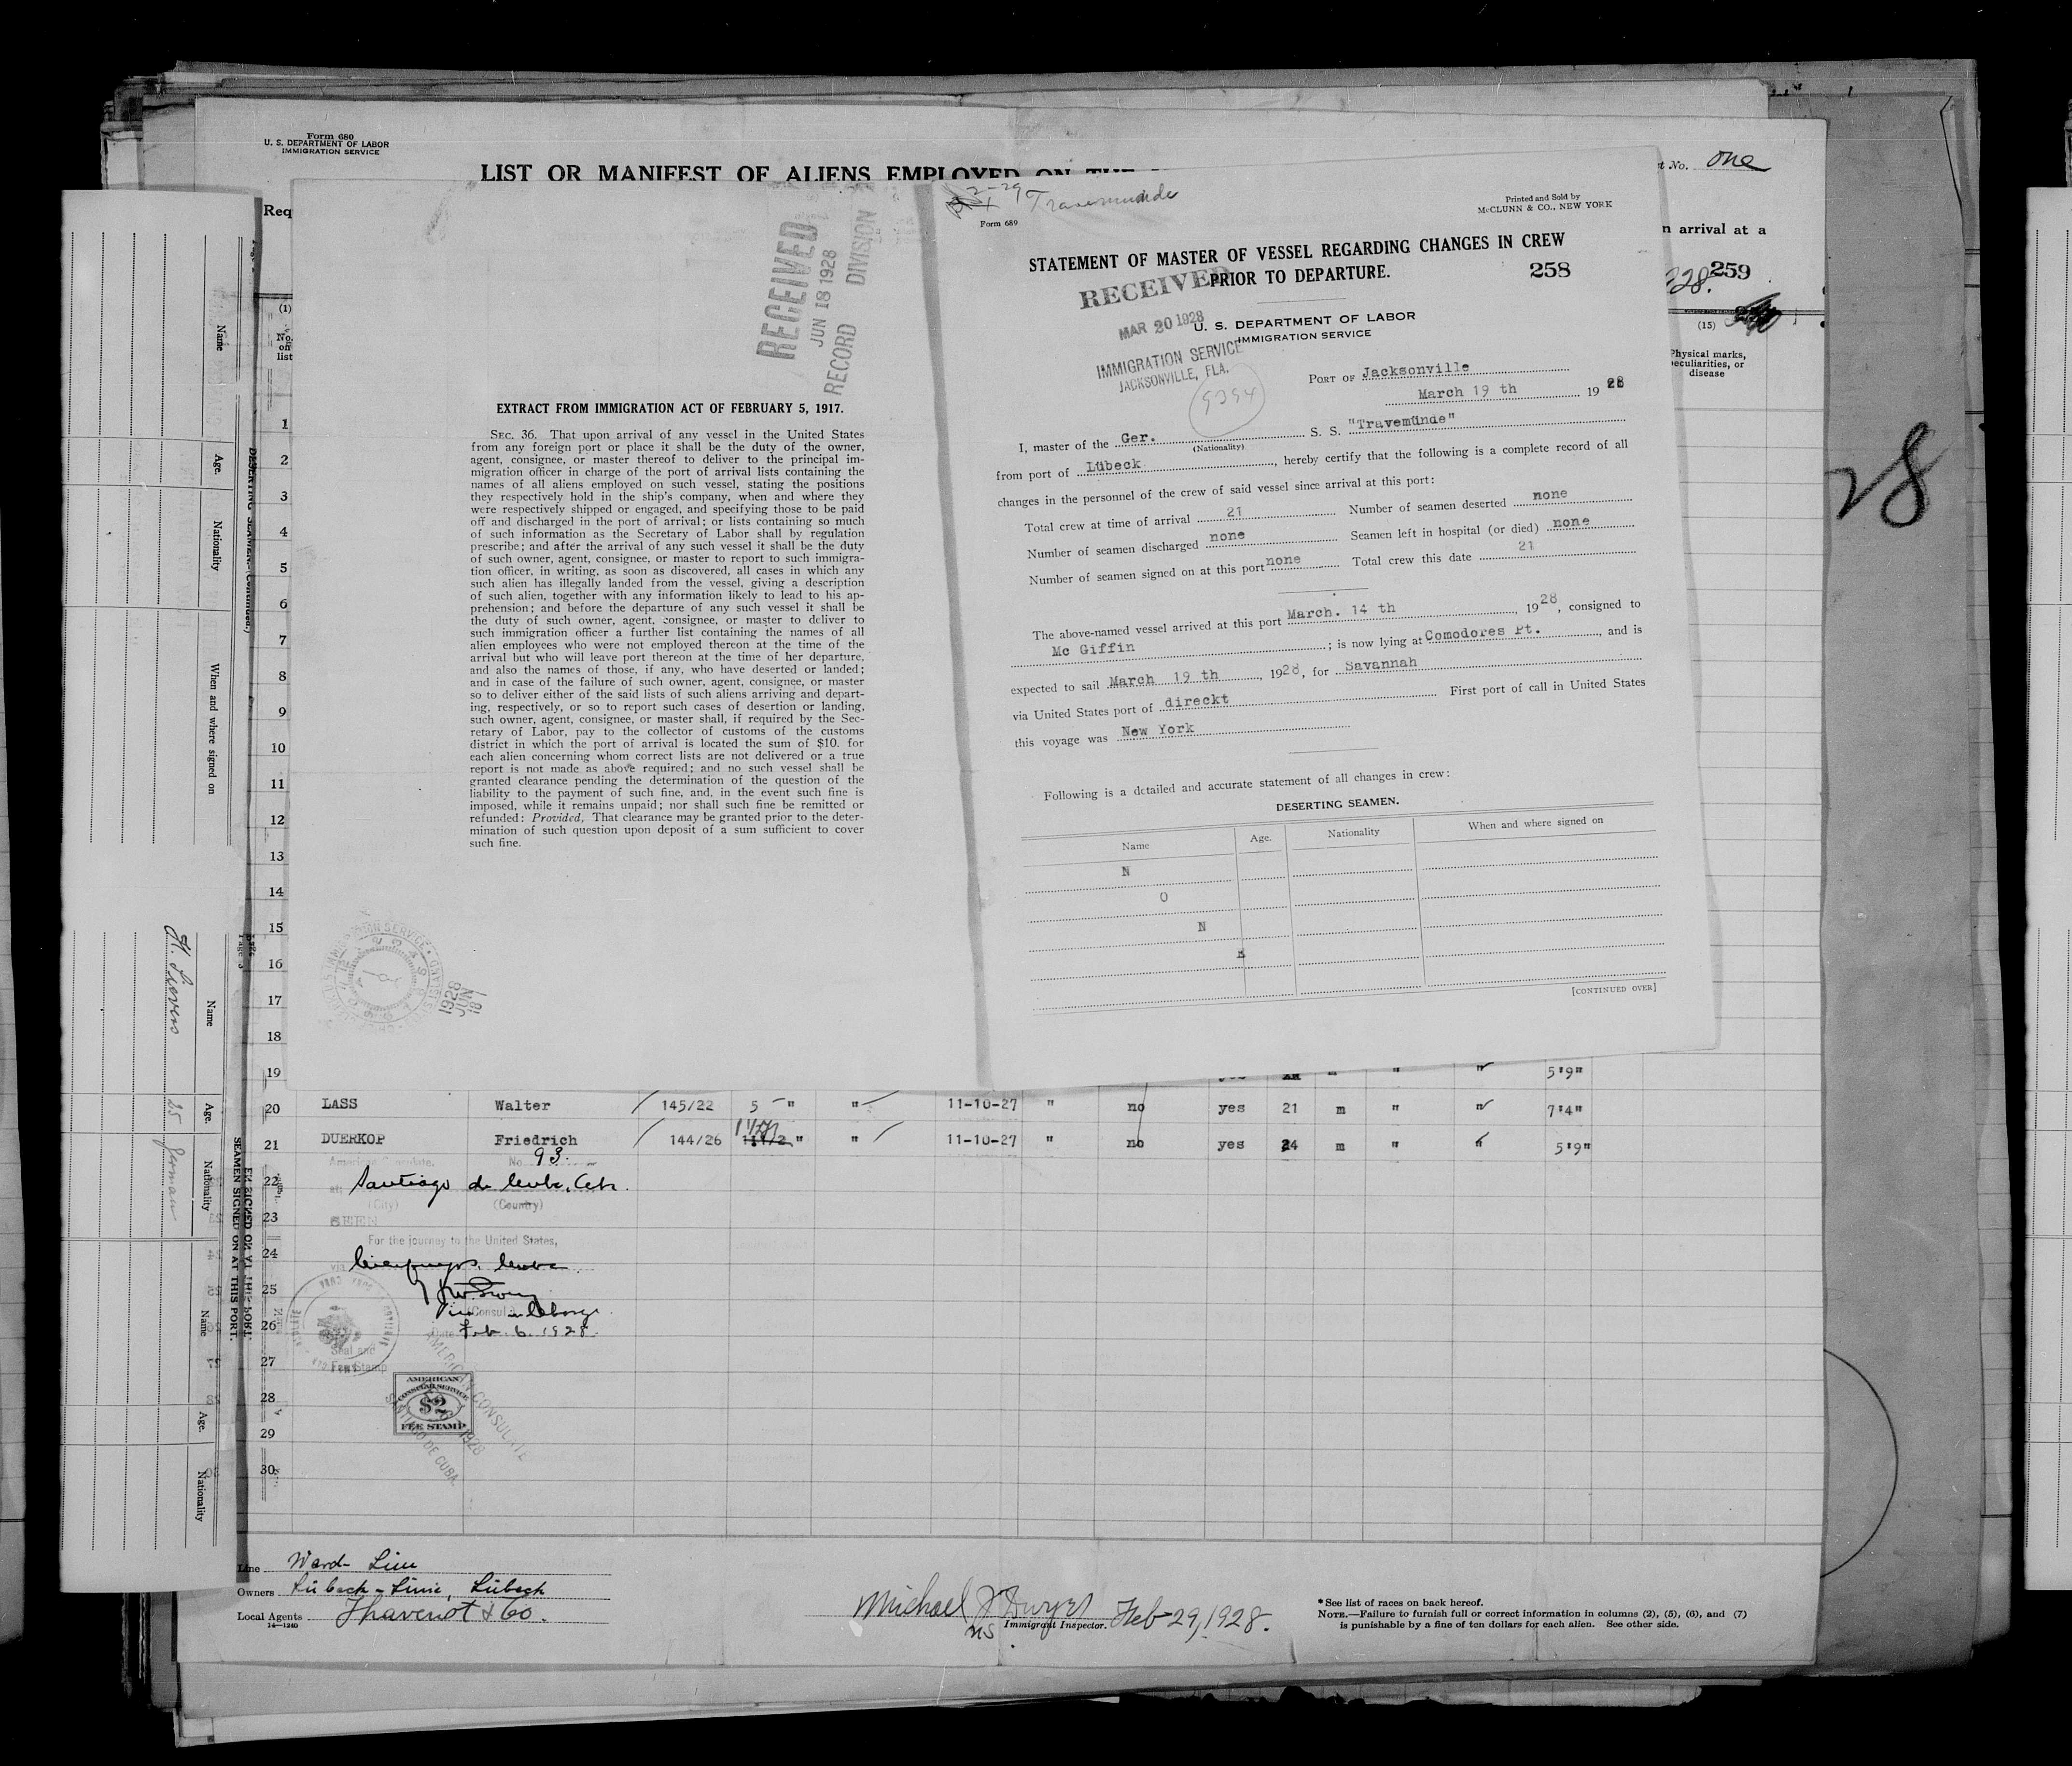 Form 680
U. S. DEPARTMENT OF LABOR
IMMIGRATION SERVICE
LIST OR MANIFEST OF ALIENS EMPLOYED ON THE
No. one
Req
n arrival at a
259
(1)
No. on list
(15)
Physical marks, peculiarities, or disease
28
1
2
3
4
5
6
7
8
9
10
11
12
13
14
15
16
17
18
19
RECEIVED
JUN 18 1928
RECORD DIVISION
EXTRACT FROM IMMIGRATION ACT OF FEBRUARY 5, 1917.
SEC. 36. That upon arrival of any vessel in the United States
from any foreign port or place it shall be the duty of the owner,
agent, consignee, or master thereof to deliver to the principal im-
migration officer in charge of the port of arrival lists containing the
names of all aliens employed on such vessel, stating the positions
they respectively hold in the ship's company, when and where they
were respectively shipped or engaged, and specifying those to be paid
off and discharged in the port of arrival; or lists containing so much
of such information as the Secretary of Labor shall by regulation
prescribe; and after the arrival of any such vessel it shall be the duty
of such owner, agent, consignee, or master to report to such immigra-
tion officer, in writing, as soon as discovered, all cases in which any
such alien has illegally landed from the vessel, giving a description
of such alien, together with any information likely to lead to his ap-
prehension; and before the departure of any such vessel it shall be
the duty of such owner, agent, consignee, or master to deliver to
such immigration officer a further list containing the names of all
alien employees who were not employed thereon at the time of the
arrival but who will leave port thereon at the time of her departure,
and also the names of those, if any, who have deserted or landed;
and in case of the failure of such owner, agent, consignee, or master
so to deliver either of the said lists of such aliens arriving and depart-
ing, respectively, or so to report such cases of desertion or landing,
such owner, agent, consignee, or master shall, if required by the Sec-
retary of Labor, pay to the collector of customs of the customs
district in which the port of arrival is located the sum of $10. for
each alien concerning whom correct lists are not delivered or a true
report is not made as above required; and no such vessel shall be
granted clearance pending the determination of the question of the
liability to the payment of such fine, and, in the event such fine is
imposed, while it remains unpaid; nor shall such fine be remitted or
refunded: Provided, That clearance may be granted prior to the deter-
mination of such question upon deposit of a sum sufficient to cover
such fine.
1928 JUN 18
2-29 Travemünde
Form 689
Printed and Sold by
McCLUNN & CO., NEW YORK
STATEMENT OF MASTER OF VESSEL REGARDING CHANGES IN CREW
PRIOR TO DEPARTURE.
258
RECEIVED
MAR 20 1928
IMMIGRATION SERVICE
JACKSONVILLE, FLA.
9394
U. S. DEPARTMENT OF LABOR
IMMIGRATION SERVICE
PORT OF Jacksonville
March 19 th 1928
I, master of the Ger. S. S. "Travemünde"
(Nationality)
from port of Lübeck, hereby certify that the following is a complete record of all
changes in the personnel of the crew of said vessel since arrival at this port:
Total crew at time of arrival 21 Number of seamen deserted none
Number of seamen discharged none Seamen left in hospital (or died) none
Number of seamen signed on at this port none Total crew this date 21
The above-named vessel arrived at this port March. 14 th, 1928, consigned to
Mc Giffin; is now lying at Comodores Pt., and is
expected to sail March 19 th, 1928, for Savannah
via United States port of direckt First port of call in United States
this voyage was New York
Following is a detailed and accurate statement of all changes in crew:
DESERTING SEAMEN.
Name Age. Nationality When and where signed on
N
O
N
E
[CONTINUED OVER]
5'9"
20 LASS Walter 145/22 5 " " 11-10-27 " no yes 21 m " " 7'4"
21 DUERKOP Friedrich 144/26 " " 11-10-27 " no yes 24 m " " 5'9"
American Consulate. No. 93.
22 at Santiago de Cuba, Cuba.
(City) (Country)
23 SEEN
For the journey to the United States,
24 Cienfuegos, Cuba
25
(Consul)
26 Date Feb. 6. 1928.
Seal and
27 Fee Stamp
28 AMERICAN
CONSULAR SERVICE
$2
FEE STAMP
AMERICAN CONSULATE
1928
SANTIAGO DE CUBA
29
30
Line Ward-Line
Owners Lübeck-Linie, Lübeck
Local Agents Thavenot & Co.
14—1240
Michael J Dwyer
Immigrant Inspector. Feb 29, 1928.
* See list of races on back hereof.
NOTE.—Failure to furnish full or correct information in columns (2), (5), (6), and (7)
is punishable by a fine of ten dollars for each alien. See other side.
DESERTING SEAMEN.—(Continued.)
Name Age. Nationality When and where signed on
Page 3
SEAMEN SIGNED ON AT THIS PORT.
Name Age. Nationality
H. Sievers 25 German
Name Age. Nationality